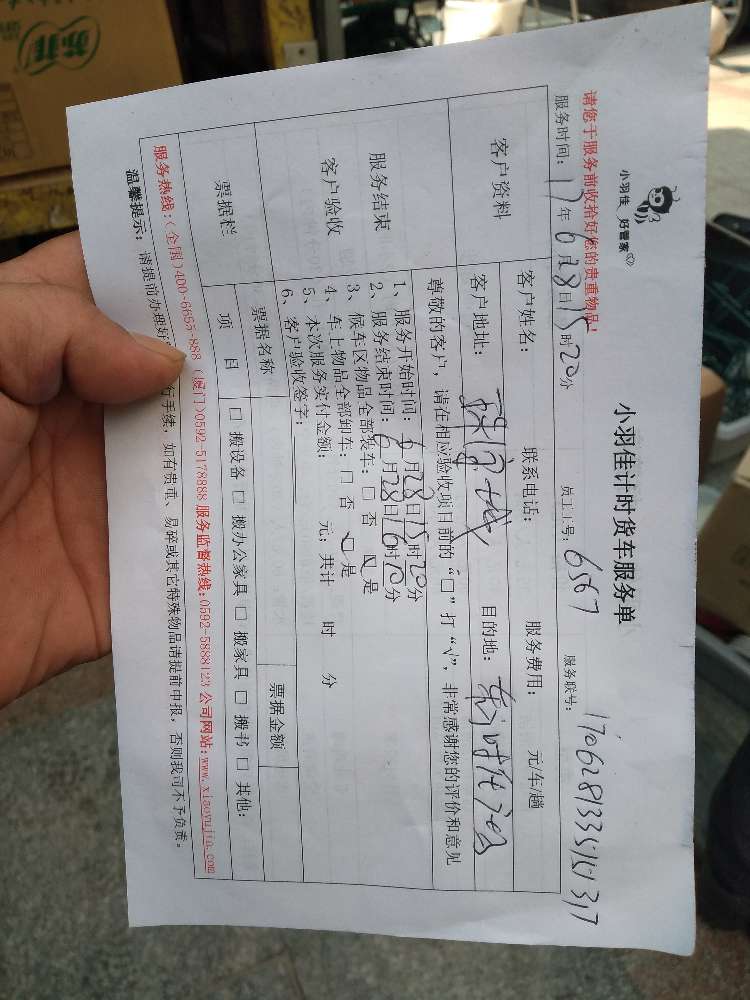 苏菲
小羽佳 好管家
小羽佳计时货车服务单
请您于服务前收拾好您的贵重物品!
服务时间: 17年6月28日15时20分 员工工号: 6567 服务联号:
客户资料 客户姓名: 联系电话: 服务费用: 元/车/趟
客户地址: 目的地:
尊敬的客户, 请在相应验收项目前的“□”打“√”, 非常感谢您的评价和意见
服务结束
客户验收
1、服务开始时间: 6月28日15时20分
2、服务结束时间: 6月28日16时10分
3、候车区物品全部装车: □ 否 ☑ 是
4、车上物品全部卸车: □ 否 ☑ 是
5、本次服务实付金额: 元; 共计 时 分
6、客户验收签字:
票据栏 票据名称 票据金额
项 目 □ 搬设备 □ 搬办公家具 □ 搬家具 □ 搬书 □ 其他:
服务热线:(全国)400-6655-888 (厦门)0592-5178888 服务监督热线:0592-5888123 公司网站:www.xiaoyujia.com
温馨提示: 请提前办理好 行手续, 如有贵重、易碎或其它特殊物品请提前申报, 否则我司不予负责。